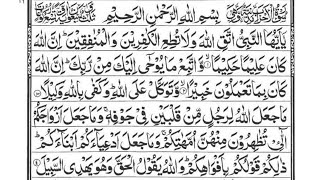 بِسْمِ اللّٰهِ الرَّحْمٰنِ الرَّحِيْمِ
يٰۤاَيُّهَا النَّبِىُّ اتَّقِ اللّٰهَ وَلَا تُطِعِ الْكٰفِرِيْنَ وَالْمُنٰفِقِيْنَ ؕ اِنَّ اللّٰهَ
كَانَ عَلِيْمًا حَكِيْمًا ۙ وَّاتَّبِعْ مَا يُوْحٰۤى اِلَيْكَ مِنْ رَّبِّكَ ؕ اِنَّ اللّٰهَ
كَانَ بِمَا تَعْمَلُوْنَ خَبِيْرًا ۙ وَّتَوَكَّلْ عَلَى اللّٰهِ ؕ وَكَفٰى بِاللّٰهِ وَكِيْلًا
مَا جَعَلَ اللّٰهُ لِرَجُلٍ مِّنْ قَلْبَيْنِ فِىْ جَوْفِهٖ ۚ وَمَا جَعَلَ اَزْوَاجَكُمُ
الّٰٓـِٔىْ تُظٰهِرُوْنَ مِنْهُنَّ اُمَّهٰتِكُمْ ۚ وَمَا جَعَلَ اَدْعِيَآءَكُمْ اَبْنَآءَكُمْ ؕ
ذٰلِكُمْ قَوْلُكُمْ بِاَفْوَاهِكُمْ ؕ وَاللّٰهُ يَقُوْلُ الْحَقَّ وَهُوَ يَهْدِى السَّبِيْلَ